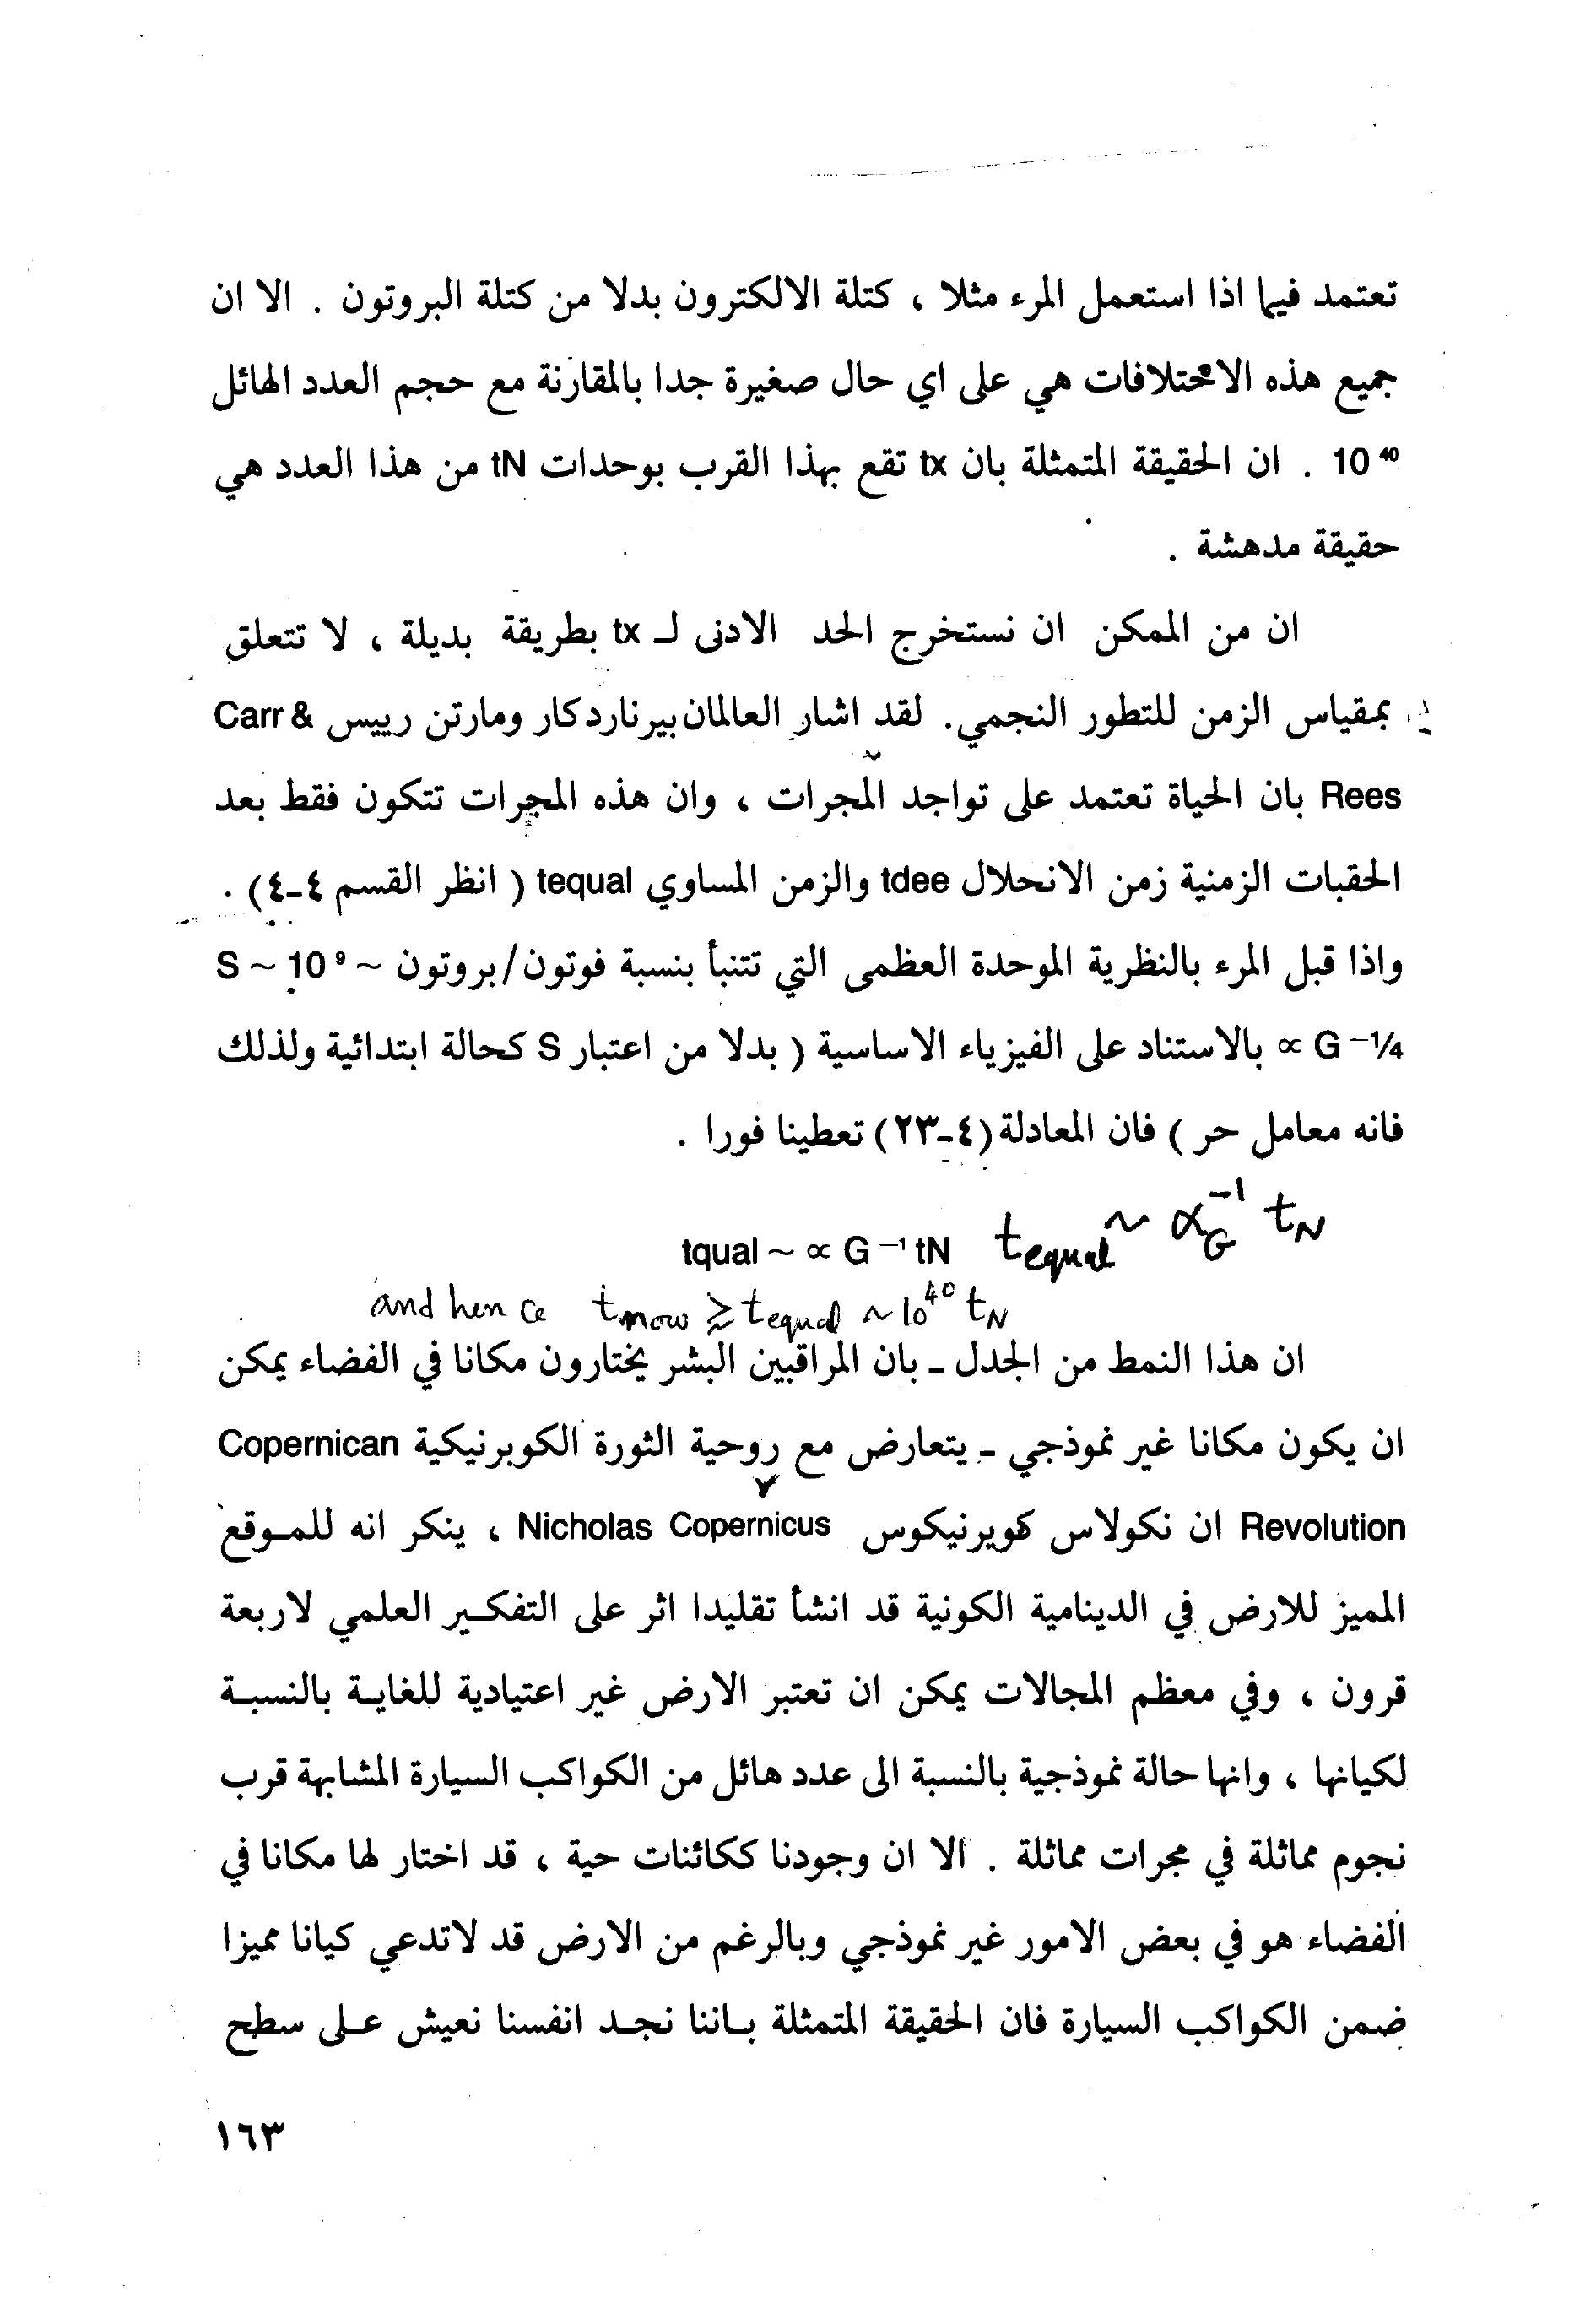 تعتمد فيما اذا استعمل المرء مثلا ، كتلة الالكترون بدلا من كتلة البروتون . الا ان
جميع هذه الاختلافات هي على اي حال صغيرة جدا بالمقارنة مع حجم العدد الهائل
10⁴⁰ . ان الحقيقة المتمثلة بان tx تقع بهذا القرب بوحدات tN من هذا العدد هي
حقيقة مدهشة .
ان من الممكن ان نستخرج الحد الادنى لـ tx بطريقة بديلة ، لا تتعلق
بمقياس الزمن للتطور النجمي. لقد اشار العالمان بيرناردكار ومارتن رييس Carr &
Rees بان الحياة تعتمد على تواجد المجرات ، وان هذه المجرات تتكون فقط بعد
الحقبات الزمنية زمن الانحلال tdee والزمن المساوي tequal ( انظر القسم ٤-٤) .
واذا قبل المرء بالنظرية الموحدة العظمى التي تتنبأ بنسبة فوتون/بروتون ~ S ~ 10⁹
∝ G −¼ بالاستناد على الفيزياء الاساسية ( بدلا من اعتبار S كحالة ابتدائية ولذلك
فانه معامل حر ) فان المعادلة (٤-٢٣) تعطينا فورا .
tqual ~ ∝ G −¹ tN t equal ~ α G ⁻¹ t N
and hence t now ≳ t equal ~ 10⁴⁰ t N
ان هذا النمط من الجدل - بان المراقبين البشر يختارون مكانا في الفضاء يمكن
ان يكون مكانا غير نموذجي - يتعارض مع روحية الثورة الكوبرنيكية Copernican
Revolution ان نكولاس كوبرنيكوس Nicholas Copernicus ، ينكر انه للموقع
المميز للارض في الدينامية الكونية قد انشأ تقليدا اثر على التفكير العلمي لاربعة
قرون ، وفي معظم المجالات يمكن ان تعتبر الارض غير اعتيادية للغاية بالنسبة
لكيانها ، وانها حالة نموذجية بالنسبة الى عدد هائل من الكواكب السيارة المشابهة قرب
نجوم مماثلة في مجرات مماثلة . الا ان وجودنا ككائنات حية ، قد اختار لها مكانا في
الفضاء هو في بعض الامور غير نموذجي وبالرغم من الارض قد لاتدعي كيانا مميزا
ضمن الكواكب السيارة فان الحقيقة المتمثلة باننا نجد انفسنا نعيش على سطح
١٦٣